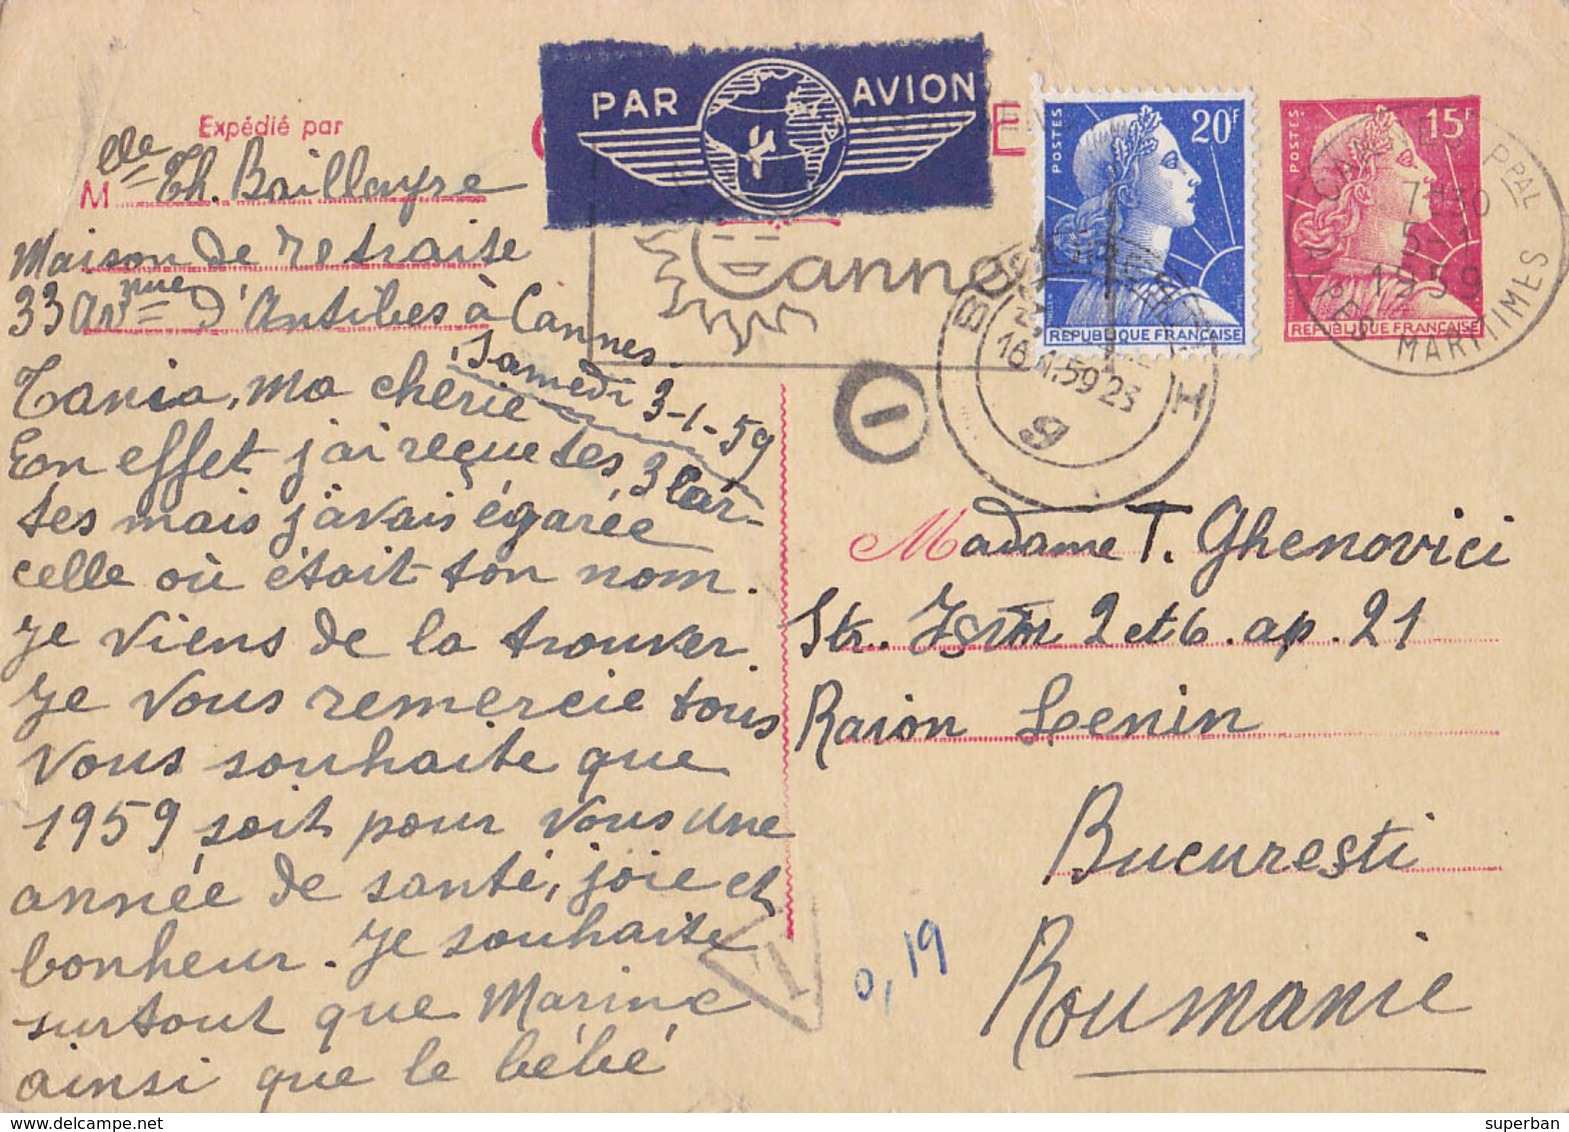 PAR AVION
E
POSTES 20F
REPUBLIQUE FRANÇAISE
POSTES 15F
REPUBLIQUE FRANÇAISE
CANNES PPAL
7H30
5-1
1959
ALPES MARITIMES
Cannes
16. 1. 59 23
9
Expédié par
Mlle Th. Baillayre
Maison de retraite
33 Avenue d'Antibes à Cannes.
Samedi 3-1-59
Tania, ma cherie
En effet j'ai reçue tes 3 Car-
tes mais j'avais égarée
celle où était ton nom.
Je viens de la trouver.
Je vous remercie tous
Vous souhaite que
1959 soit pour vous une
année de santé, joie et
bonheur. Je souhaite
surtout que Marine
ainsi que le bébé
Madame T. Ghenovici
Str. 2 et 6. ap. 21
Raion Lenin
Bucureşti
Roumanie
0,19
T
DELCAMPE.NET
superban